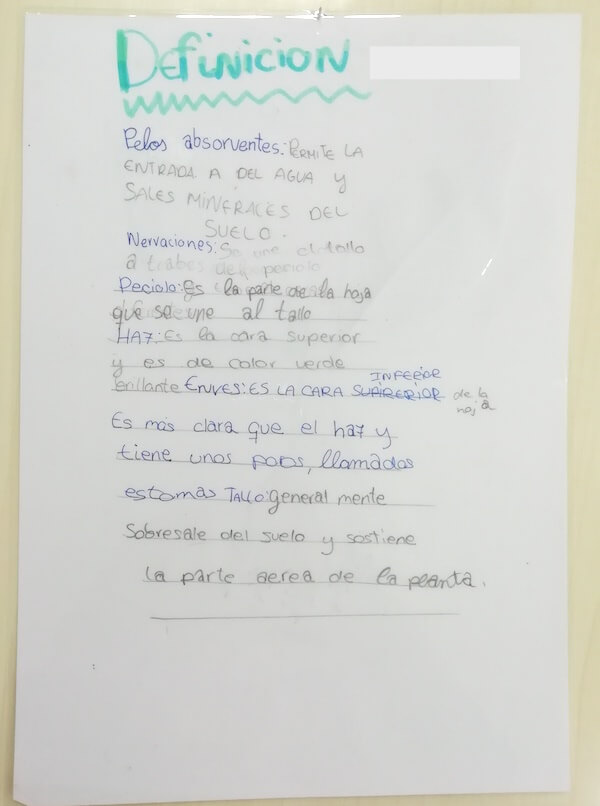 Definicion
Pelos absorventes: PERMITE LA
ENTRADA A DEL AGUA y
SALES MINERALES DEL
SUELO.
Nervaciones: Se une el tallo
a trabes del periolo
Peciolo: Es la parte de la hoja
que se une al tallo
HAZ: Es la cara superior
y es de color verde
brillante Enves: ES LA CARA SUPIERIOR INFERIOR de la hoja
Es más clara que el haz y
tiene unos poros, llamados
estomas TALLO: general mente
Sobresale del suelo y sostiene
la parte aerea de la planta.